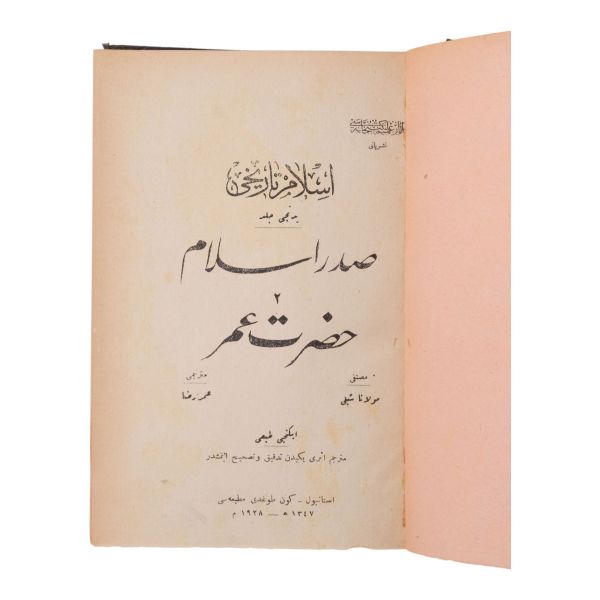 آثار علمیه کتبخانه سی
نشریاتی
اسلام تاریخی
برنجی جلد
صدر اسلام
٢
حضرت عمر
مصنفی
مترجمی
مولانا شبلی
عمر رضا
ایکنجی طبعی
مترجم اثری یکیدن تدقیق و تصحیح ایتمشدر
استانبول - کون طوغدی مطبعه سی
١٣٤٧ ھ — ١٩٢٨ م